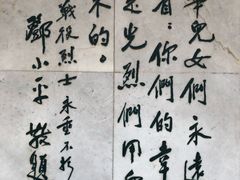 兒女們永遠
你們的幸
是先烈們用
来的。
戰役烈士永垂不朽
鄧小平敬題